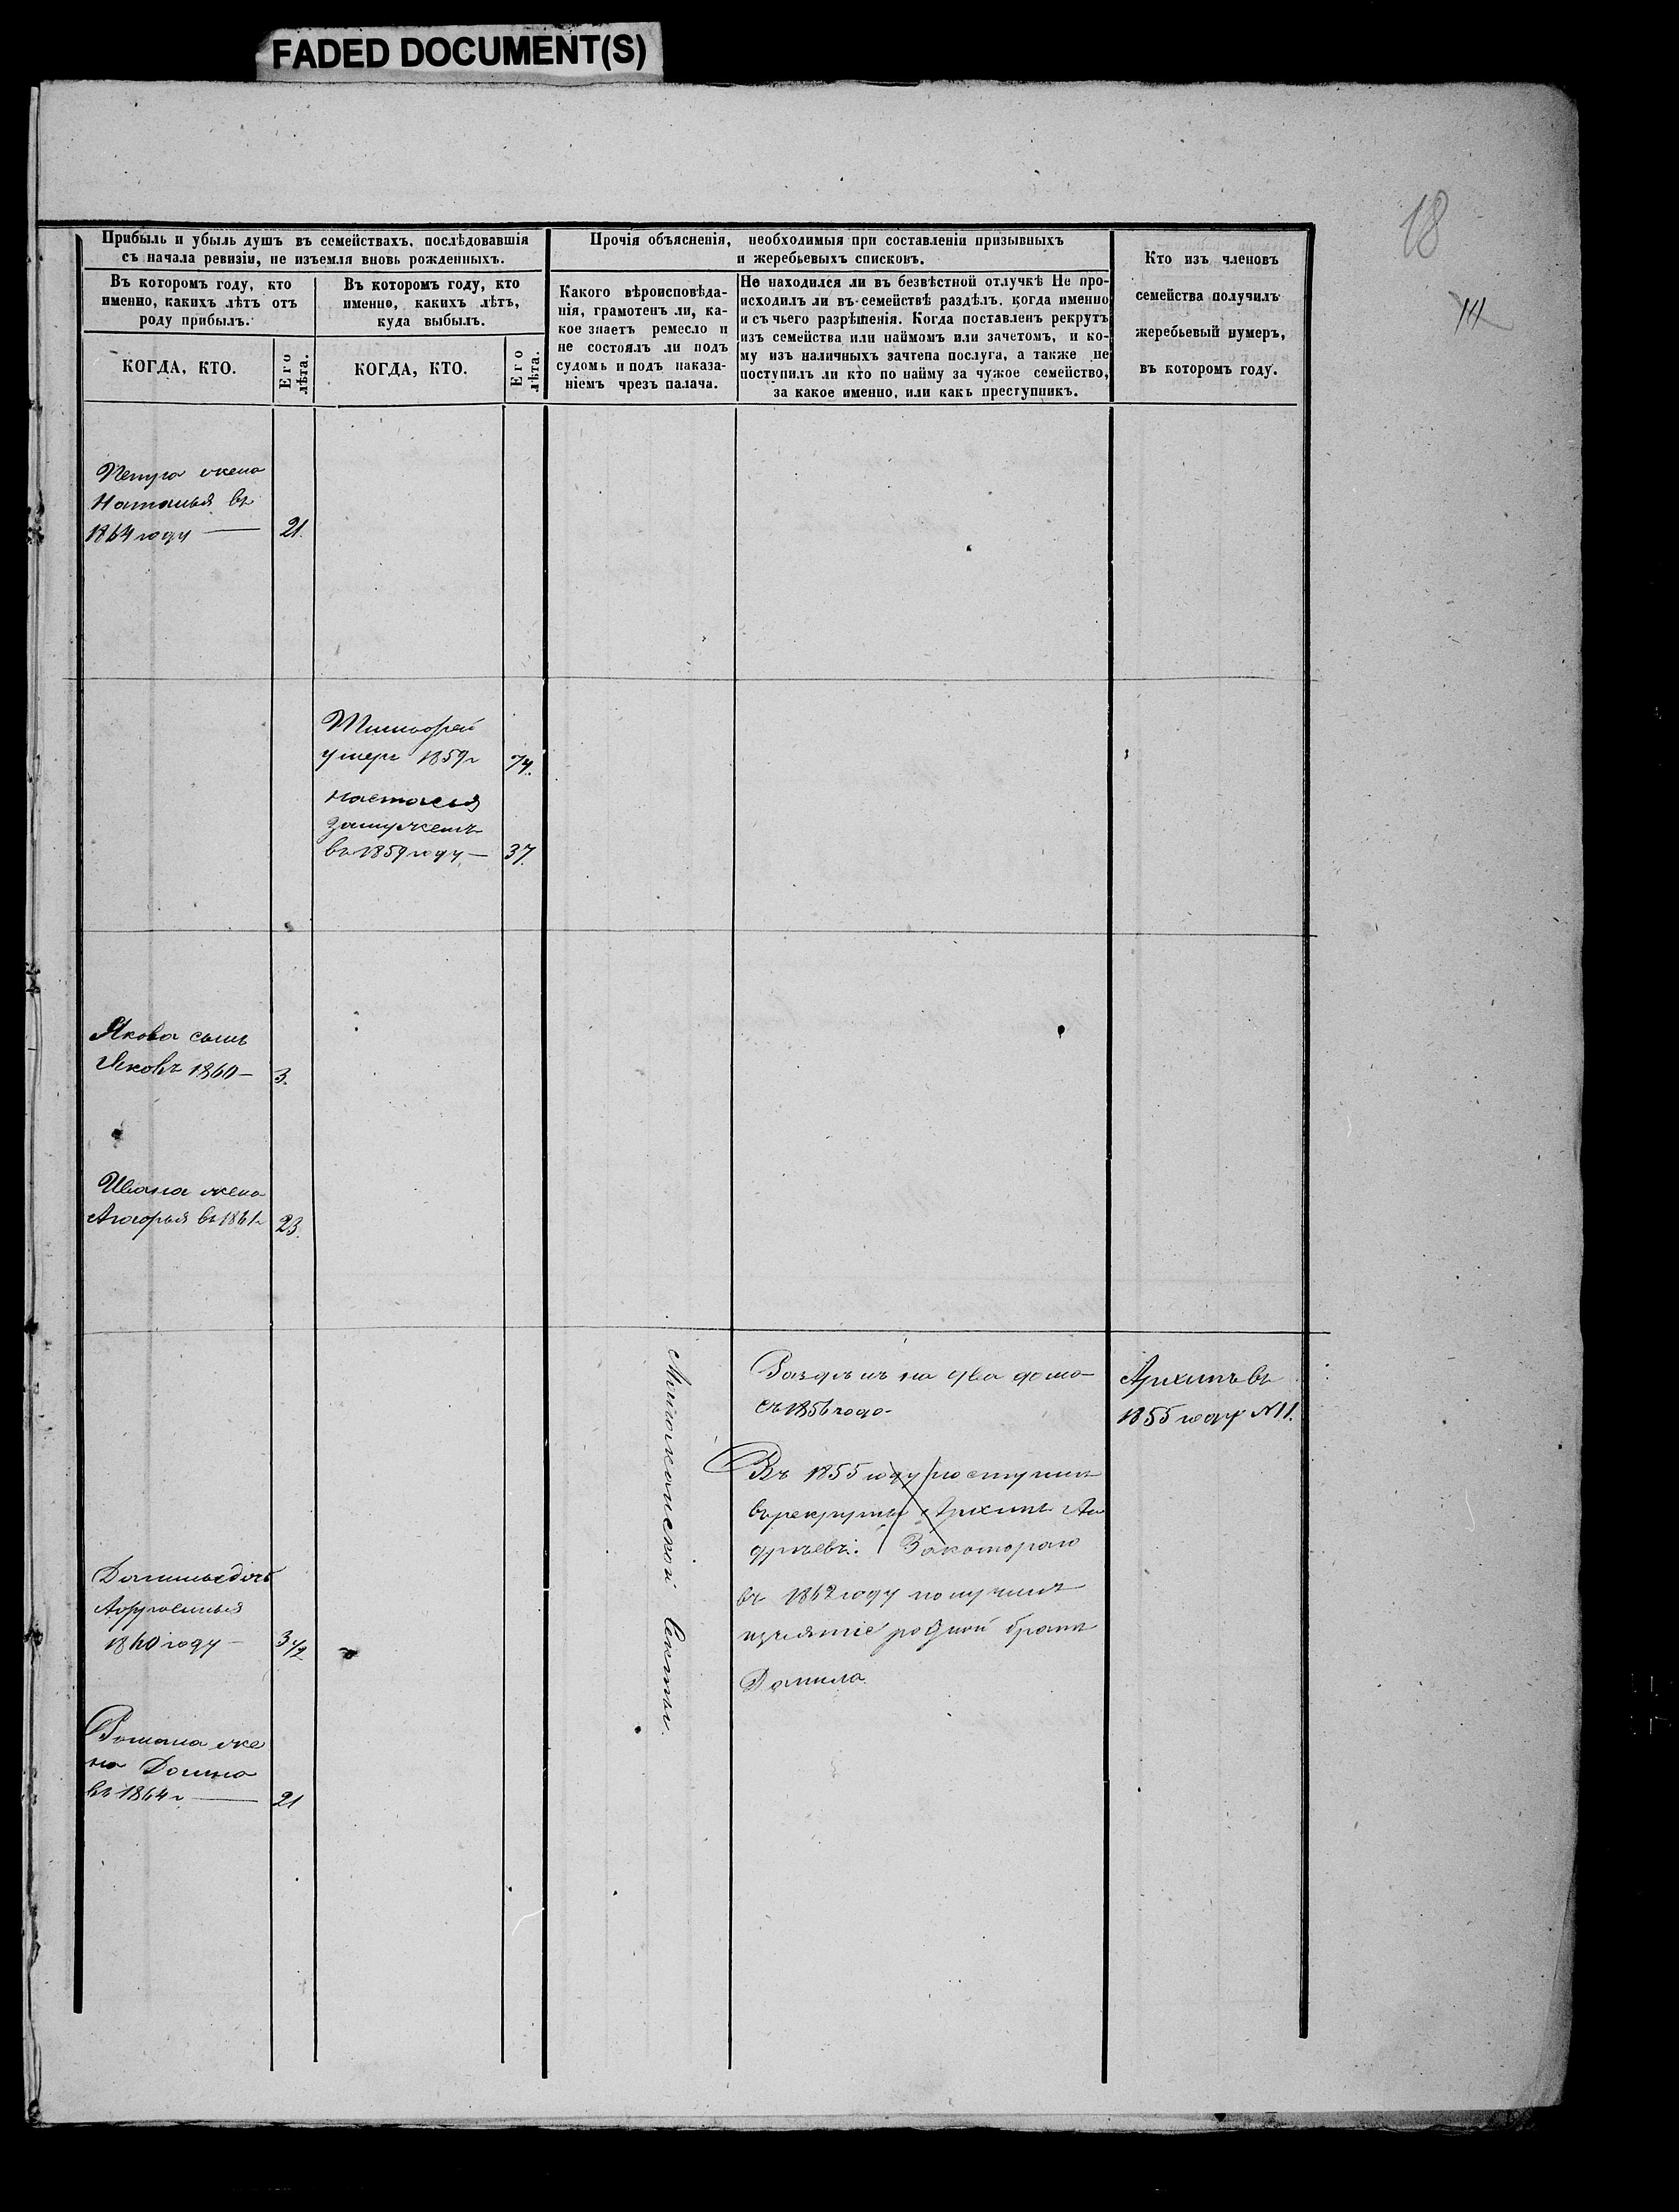 FADED DOCUMENT(S)
18
Прибыль и убыль душъ въ семействахъ, послѣдовавшія
съ начала ревизіи, не изъемля вновь рожденныхъ.
Въ которомъ году, кто
именно, какихъ лѣтъ отъ
роду прибылъ.
КОГДА, КТО.
Его
лѣта.
Въ которомъ году, кто
именно, какихъ лѣтъ,
куда выбылъ.
КОГДА, КТО.
Его
лѣта.
Прочія объясненія, необходимыя при составленіи призывныхъ
и жеребьевыхъ списковъ.
Какого вѣроисповѣда-
нія, грамотенъ ли, ка-
кое знаетъ ремесло и
не состоялъ ли подъ
судомъ и подъ наказа-
ніемъ чрезъ палача.
Не находился ли въ безвѣстной отлучкѣ Не про-
исходилъ ли въ семействѣ раздѣлъ, когда именно
и съ чьего разрѣшенія. Когда поставленъ рекрутъ
изъ семейства или наймомъ или зачетомъ, и ко-
му изъ наличныхъ зачтена послуга, а также не
поступилъ ли кто по найму за чужое семейство,
за какое именно, или какъ преступникъ.
Кто изъ членовъ
семейства получилъ
жеребьевый нумеръ,
въ которомъ году.
жена
Наталья въ
1864 году — 21.
Тимофей
умеръ 1859 г 74.
Настасья
замужемъ
въ 1859 году — 37.
Якова сынъ
Яковъ 1860 — 3.
Ивана жена
въ 1861 г 23.
Раздѣлъ на два дома
съ 1856 года
Въ 1855 году поступилъ
въ рекруты Архипъ Ан
дрѣевъ. За котораго
въ 1862 году получилъ
изъятіе родной братъ
Данила
Архипъ въ
1855 году №11.
Молоканской Секты.
Данилы дочь
Афросинья
1860 году — 3 1/2
Романа же
на Домна
въ 1864 г — 21